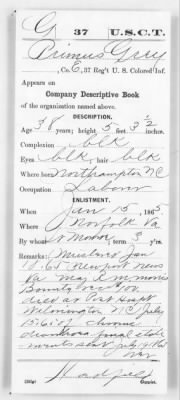 G 37 U.S.C.T.
Primus Grey
Co. E, 37 Reg't U. S. Colored Inf.
Appears on
Company Descriptive Book
of the organization named above.
DESCRIPTION.
Age 38 years; height 5 feet 3 1/2 inches.
Complexion blk
Eyes blk, hair blk
Where born Northampton NC
Occupation Laborer
ENLISTMENT.
When Jan 15, 1865
Where Norfolk Va
By whom term 3 y'rs.
Remarks: Mustered Jan
18.65 Newport News
Va
Bounty
died at Post Hospt
Wilmington N.C. July
15.65 of Chronic
diarrhoea final state
ments sent July
over
Hadfield
Copyist.